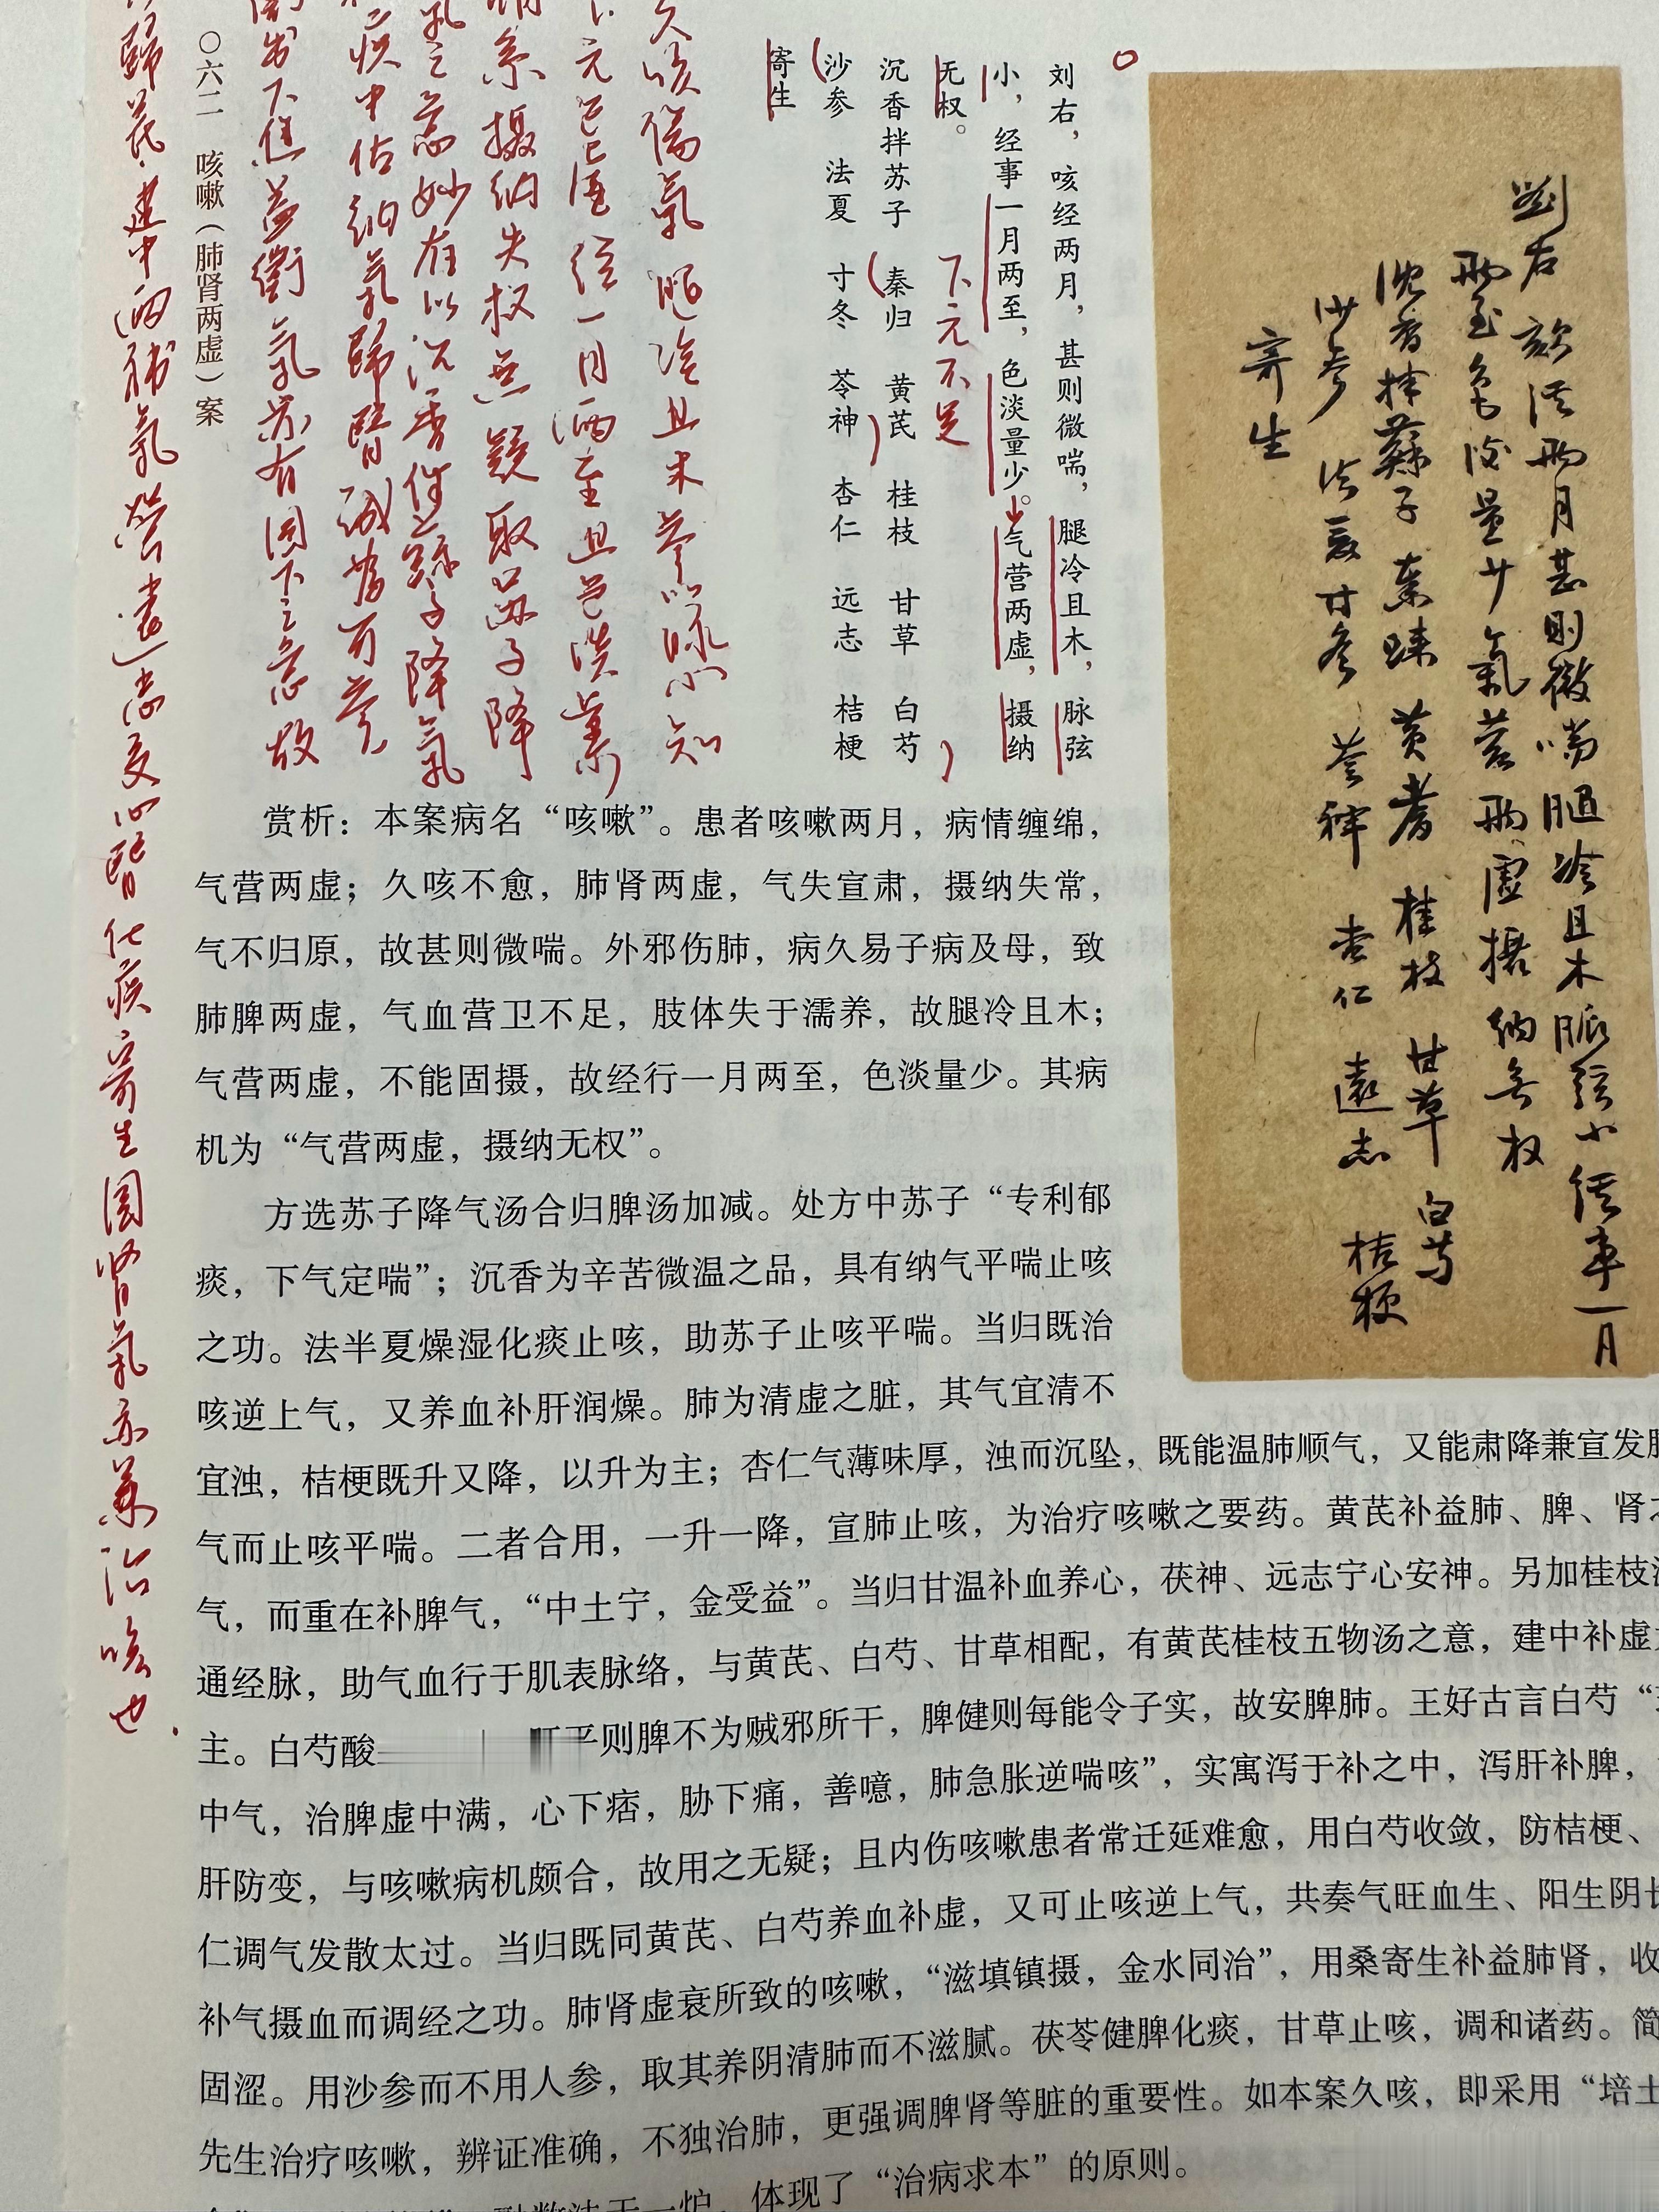 劉右 欬经两月甚则微喘腿冷且木脈弦小经事一月
两至色淡量少氣营两虚摄纳无权
沈香拌蘇子 秦歸 黄耆 桂枝 甘草 白芍
沙参 法夏 寸冬 苓神 杏仁 遠志 桔梗
寄生
刘右，咳经两月，甚则微喘，腿冷且木，脉弦
小，经事一月两至，色淡量少。气营两虚，摄纳
无权。
下元不足
沉香拌苏子 秦归 黄芪 桂枝 甘草 白芍
沙参 法夏 寸冬 苓神 杏仁 远志 桔梗
寄生
久咳傷氣 腿冷且木 参以脉小知
元已虚 经一月两至且色淡
系摄纳失权無疑 取苏子降
氣之意 妙在以沉香伴蘇子降氣
痰中佐纳氣歸腎
下焦 益衛氣 亦有固下之意 故
歸芪建中两補氣營 遠志交心腎化痰 寄生固肾氣亦兼治咳也.
〇六二 咳嗽（肺肾两虚）案
赏析：本案病名“咳嗽”。患者咳嗽两月，病情缠绵，
气营两虚；久咳不愈，肺肾两虚，气失宣肃，摄纳失常，
气不归原，故甚则微喘。外邪伤肺，病久易子病及母，致
肺脾两虚，气血营卫不足，肢体失于濡养，故腿冷且木；
气营两虚，不能固摄，故经行一月两至，色淡量少。其病
机为“气营两虚，摄纳无权”。
方选苏子降气汤合归脾汤加减。处方中苏子“专利郁
痰，下气定喘”；沉香为辛苦微温之品，具有纳气平喘止咳
之功。法半夏燥湿化痰止咳，助苏子止咳平喘。当归既治
咳逆上气，又养血补肝润燥。肺为清虚之脏，其气宜清不
宜浊，桔梗既升又降，以升为主；杏仁气薄味厚，浊而沉坠，既能温肺顺气，又能肃降兼宣发肺
气而止咳平喘。二者合用，一升一降，宣肺止咳，为治疗咳嗽之要药。黄芪补益肺、脾、肾之
气，而重在补脾气，“中土宁，金受益”。当归甘温补血养心，茯神、远志宁心安神。另加桂枝
通经脉，助气血行于肌表脉络，与黄芪、白芍、甘草相配，有黄芪桂枝五物汤之意，建中补虚
主。白芍酸 则脾不为贼邪所干，脾健则每能令子实，故安脾肺。王好古言白芍“
中气，治脾虚中满，心下痞，胁下痛，善噫，肺急胀逆喘咳”，实寓泻于补之中，泻肝补脾，
肝防变，与咳嗽病机颇合，故用之无疑；且内伤咳嗽患者常迁延难愈，用白芍收敛，防桔梗、
仁调气发散太过。当归既同黄芪、白芍养血补虚，又可止咳逆上气，共奏气旺血生、阳生阴长
补气摄血而调经之功。肺肾虚衰所致的咳嗽，“滋填镇摄，金水同治”，用桑寄生补益肺肾，收
固涩。用沙参而不用人参，取其养阴清肺而不滋腻。茯苓健脾化痰，甘草止咳，调和诸药。简
先生治疗咳嗽，辨证准确，不独治肺，更强调脾肾等脏的重要性。如本案久咳，即采用“培土
体现了“治病求本”的原则。